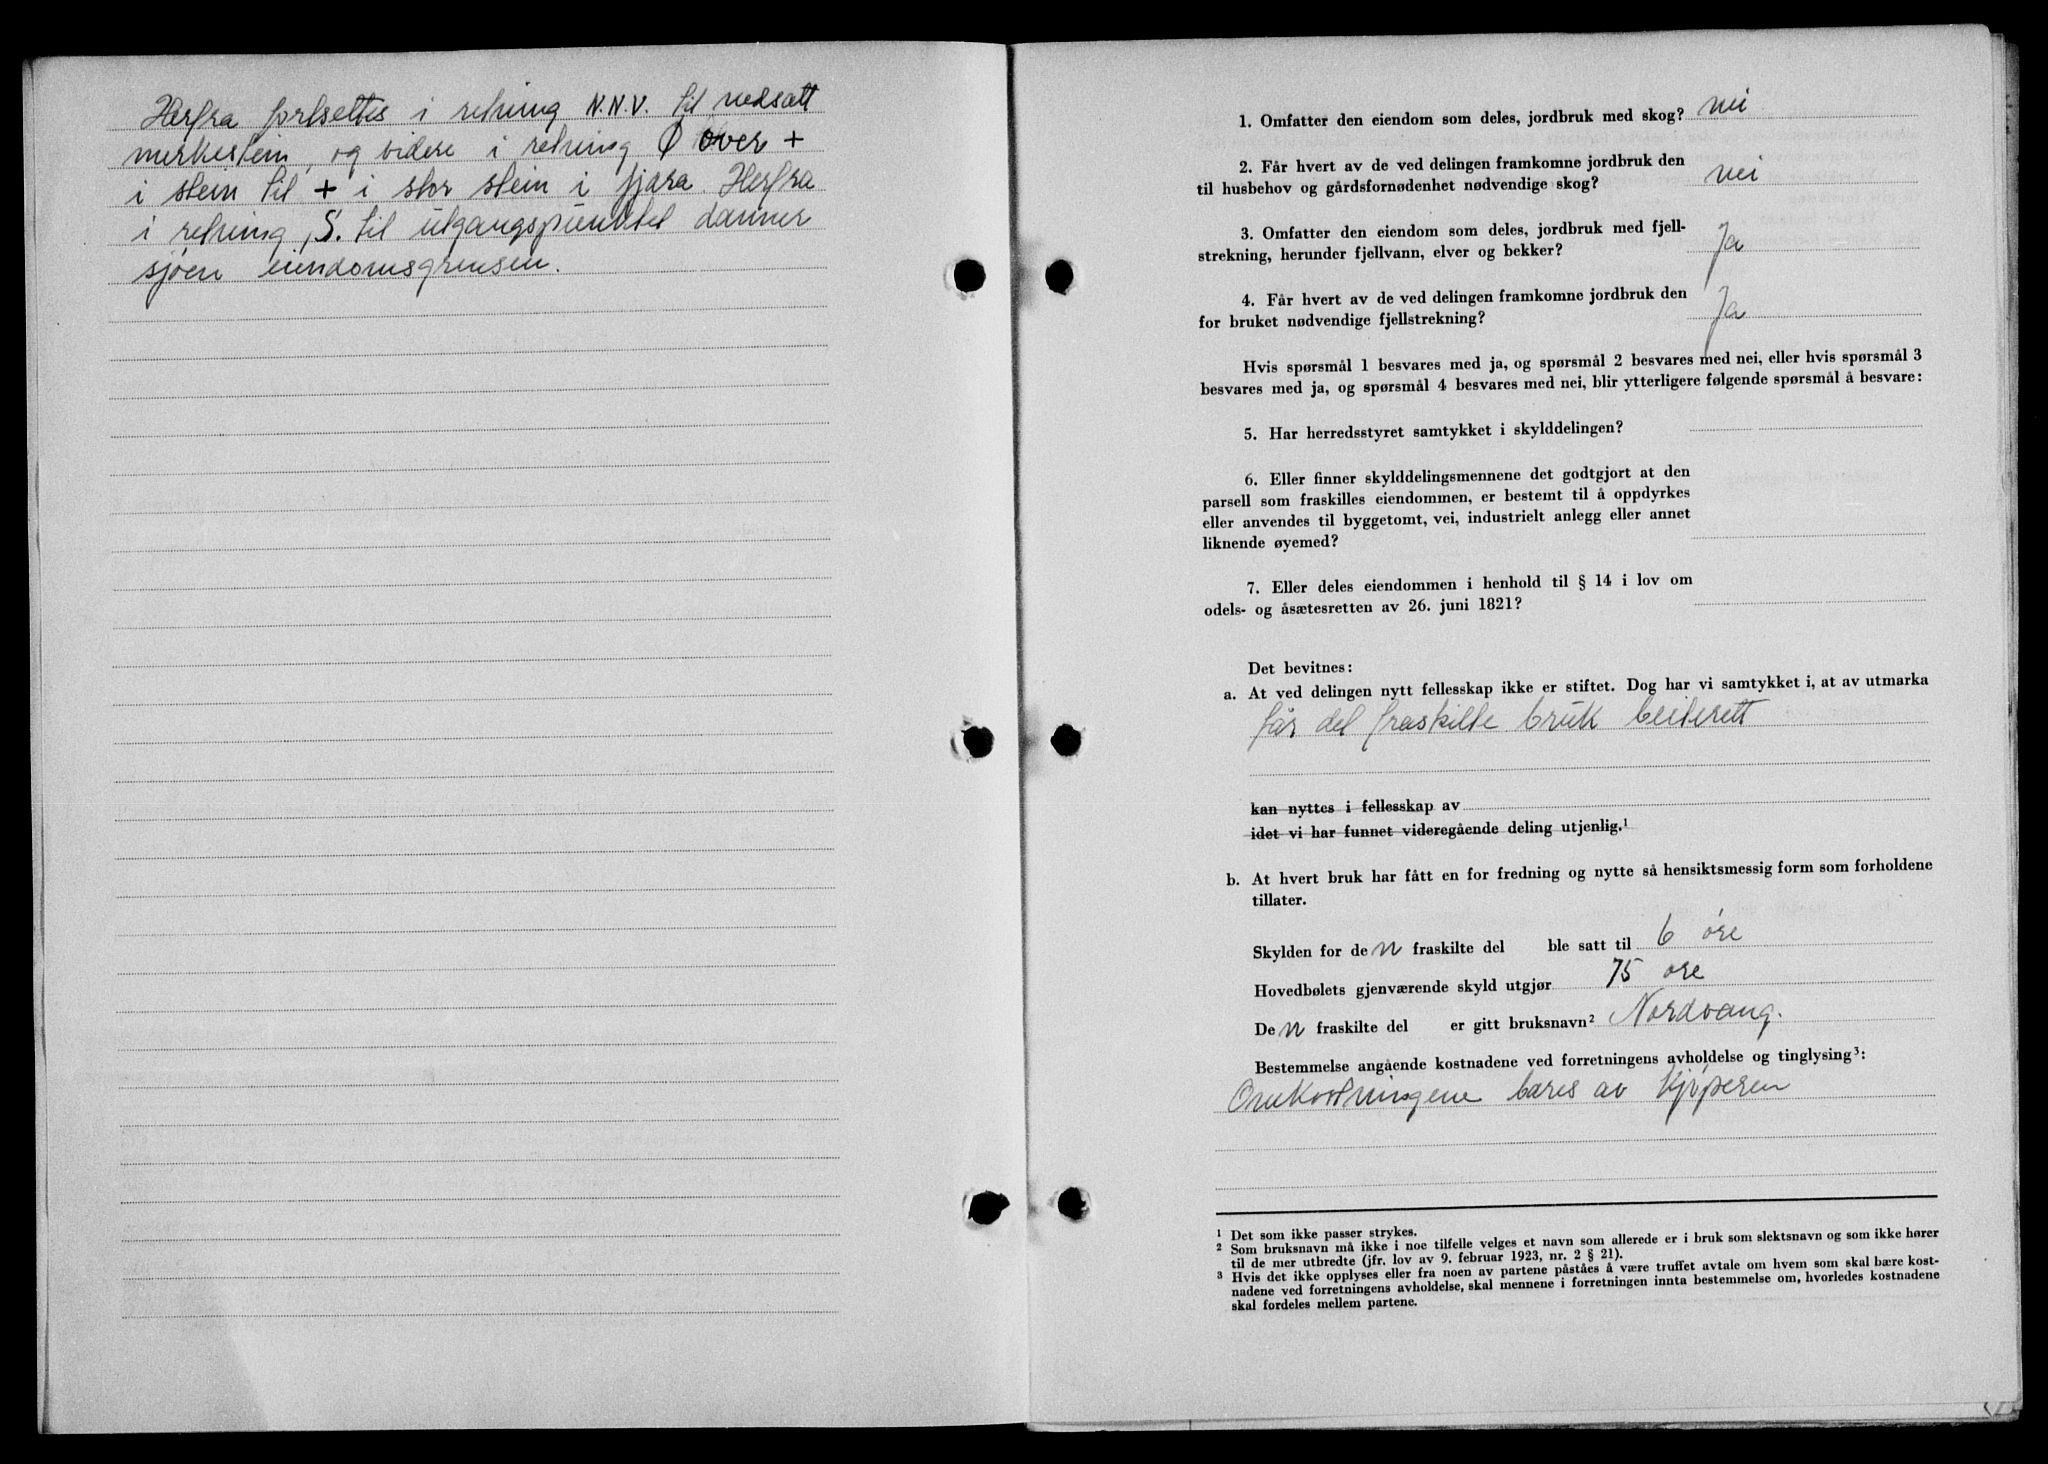 Herfra fortsettes i retning N.N.V. til nedsatt
merkestein, og videre i retning Ø over +
i stein til + i stor stein i fjæra. Herfra
i retning S. til utgangspunktet danner
sjøen eiendomsgrensen.
1. Omfatter den eiendom som deles, jordbruk med skog? nei
2. Får hvert av de ved delingen framkomne jordbruk den
til husbehov og gårdsfornødenhet nødvendige skog? nei
3. Omfatter den eiendom som deles, jordbruk med fjell-
strekning, herunder fjellvann, elver og bekker? Ja
4. Får hvert av de ved delingen framkomne jordbruk den
for bruket nødvendige fjellstrekning? Ja
Hvis spørsmål 1 besvares med ja, og spørsmål 2 besvares med nei, eller hvis spørsmål 3
besvares med ja, og spørsmål 4 besvares med nei, blir ytterligere følgende spørsmål å besvare:
5. Har herredsstyret samtykket i skylddelingen?
6. Eller finner skylddelingsmennene det godtgjort at den
parsell som fraskilles eiendommen, er bestemt til å oppdyrkes
eller anvendes til byggetomt, vei, industrielt anlegg eller annet
liknende øyemed?
7. Eller deles eiendommen i henhold til § 14 i lov om
odels- og åsætesretten av 26. juni 1821?
Det bevitnes:
a. At ved delingen nytt fellesskap ikke er stiftet. Dog har vi samtykket i, at av utmarka
får det fraskilte bruk beiterett
kan nyttes i fellesskap av
idet vi har funnet videregående deling utjenlig.¹
b. At hvert bruk har fått en for fredning og nytte så hensiktsmessig form som forholdene
tillater.
Skylden for den fraskilte del ble satt til 6 øre
Hovedbølets gjenværende skyld utgjør 75 øre
Den fraskilte del er gitt bruksnavn² Nordvang.
Bestemmelse angående kostnadene ved forretningens avholdelse og tinglysing³:
Omkostningene bæres av kjøperen
¹ Det som ikke passer strykes.
² Som bruksnavn må ikke i noe tilfelle velges et navn som allerede er i bruk som slektsnavn og som ikke hører
til de mer utbredte (jfr. lov av 9. februar 1923, nr. 2 § 21).
³ Hvis det ikke opplyses eller fra noen av partene påståes å være truffet avtale om hvem som skal bære kost-
nadene ved forretningens avholdelse, skal mennene i forretningen innta bestemmelse om, hvorledes kostnadene
skal fordeles mellem partene.